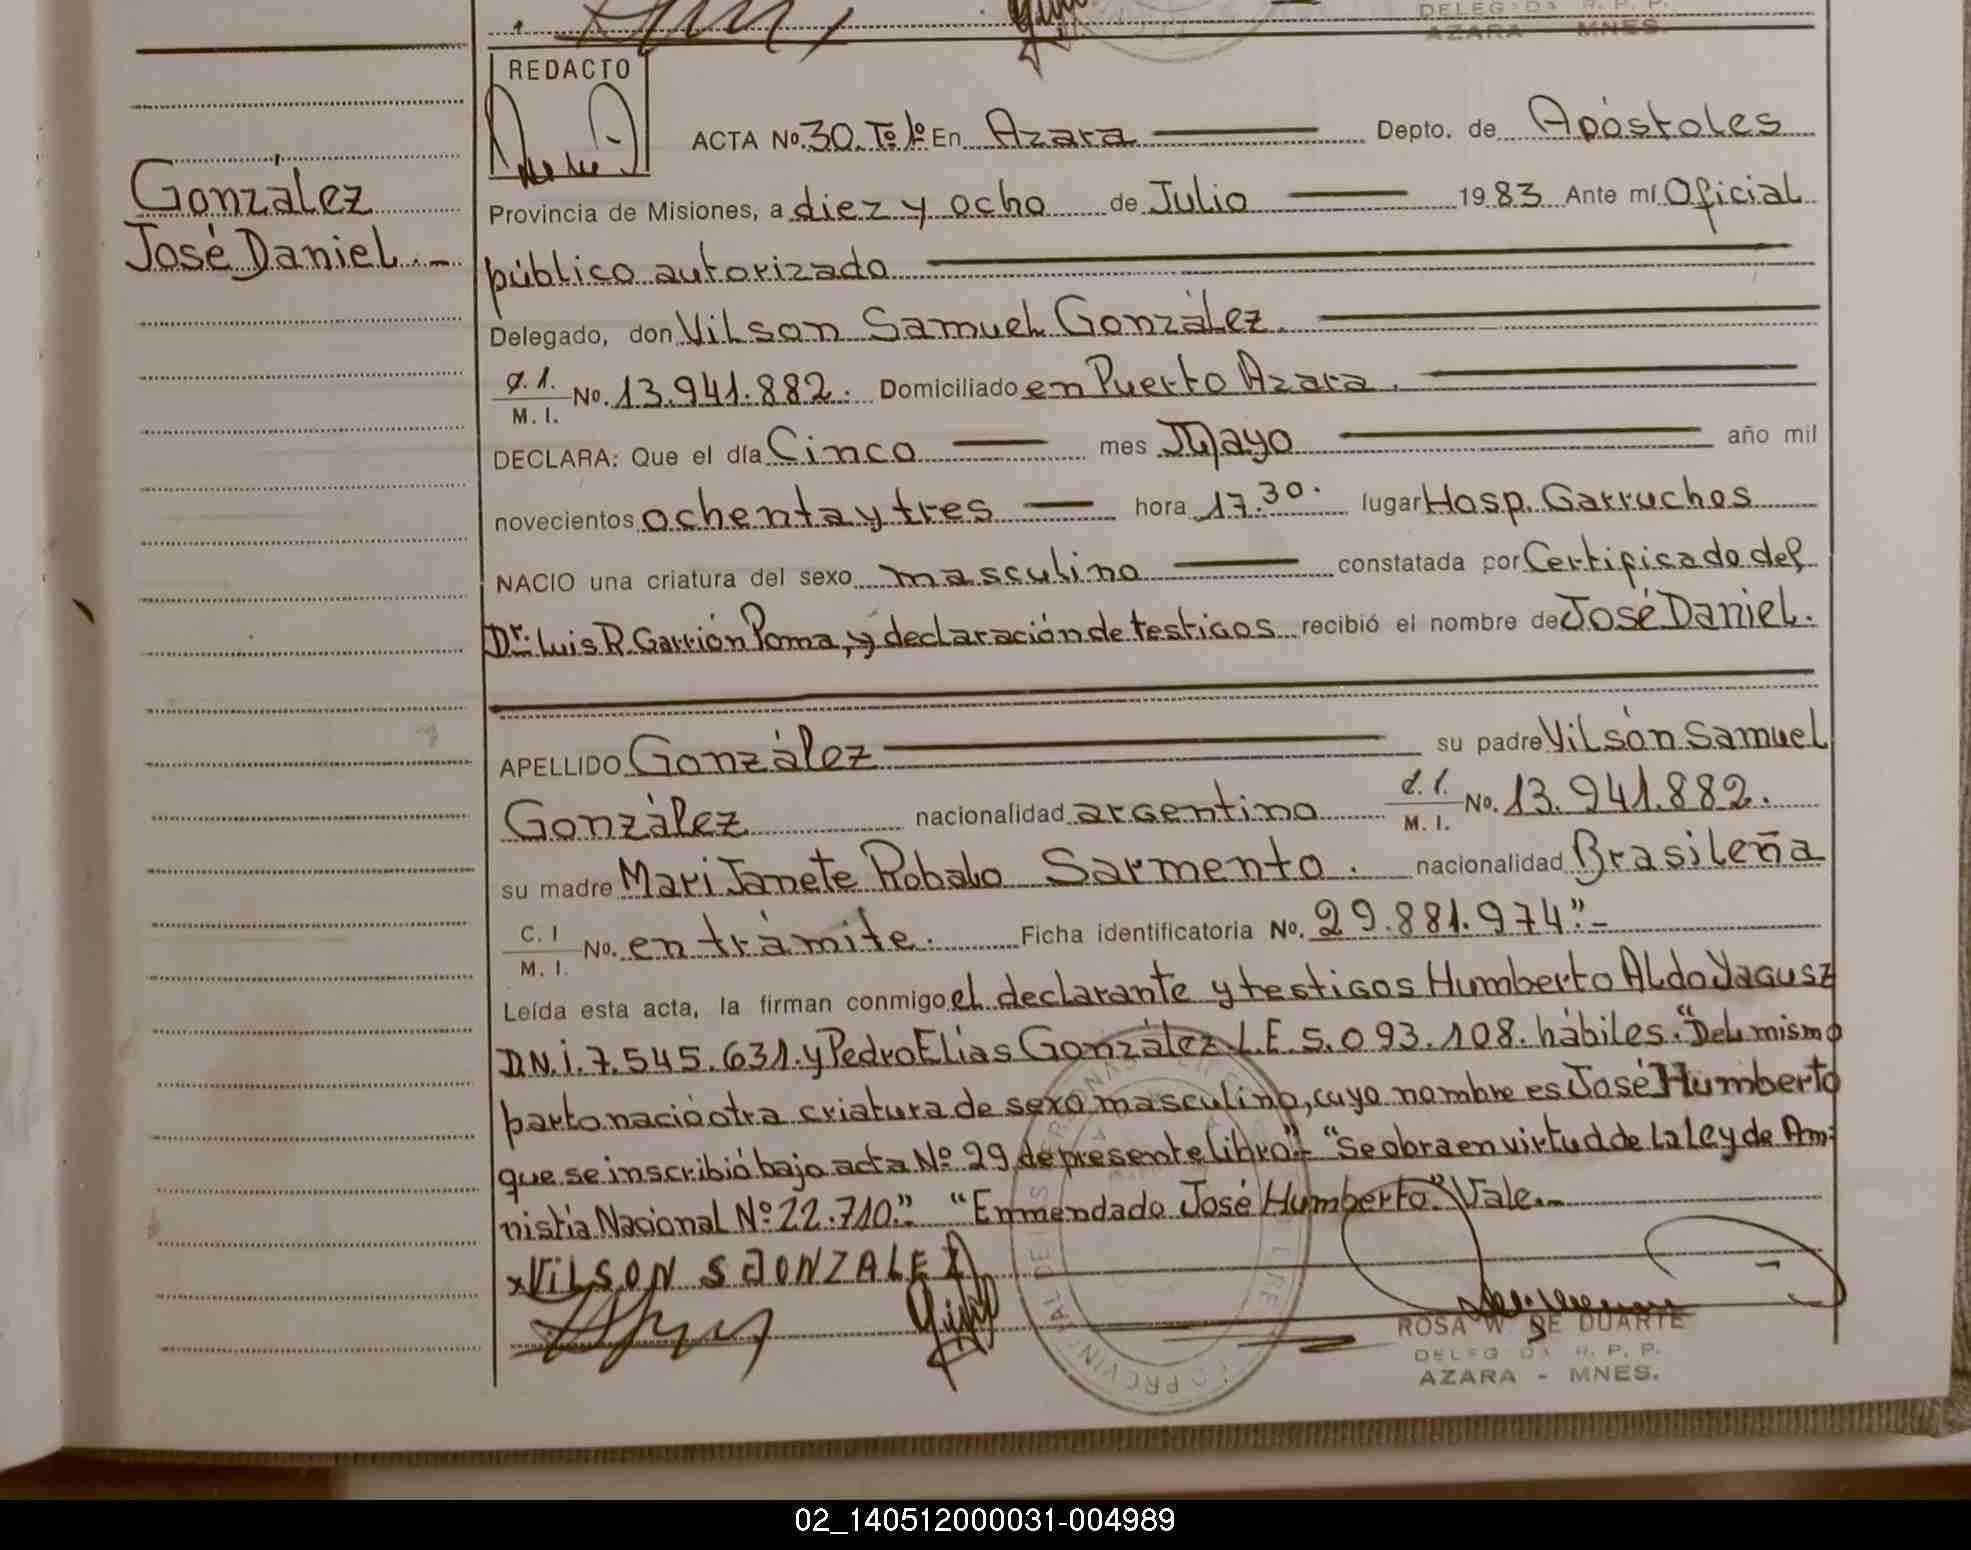 DELEG DA R. P. P.
AZARA - MNES.
REDACTO
ACTA No. 30. Tº 1º En Azara Depto. de Apóstoles
González
José Daniel.-
Provincia de Misiones, a diez y ocho de Julio 1983 Ante mí Oficial
público autorizado
Delegado, don Vilson Samuel González.
M. I. No. 13.941.882. Domiciliado en Puerto Azara.
DECLARA: Que el día Cinco mes Mayo año mil
novecientos ochenta y tres hora 17.30. lugar Hosp. Garruchos
NACIO una criatura del sexo masculino constatada por Certificado del
Dr. Luis R. Garrión Poma, y declaración de testigos recibió el nombre de José Daniel.
APELLIDO González su padre Vilsón Samuel
González nacionalidad argentino M. I. No. 13.941.882.
su madre Mari Janete Robalo Sarmento. nacionalidad Brasileña
C. I M. I. No. en trámite. Ficha identificatoria No. 29.881.974".-
Leída esta acta, la firman conmigo el declarante y testigos Humberto Aldo Yagusz
D.N.i. 7.545.631. y Pedro Elías González L.E. 5.093.108. hábiles. "Del mismo
parto nació otra criatura de sexo masculino, cuyo nombre es José Humberto
que se inscribió bajo acta Nº 29 de presente libro".- "Se obra en virtud de la Ley de Am-
nistía Nacional Nº 22.710." "Enmendado José Humberto." Vale.-
x VILSON S GONZALEZ
ROSA W. DE DUARTE
DELEG DA R. P. P.
AZARA - MNES.
02_140512000031-004989